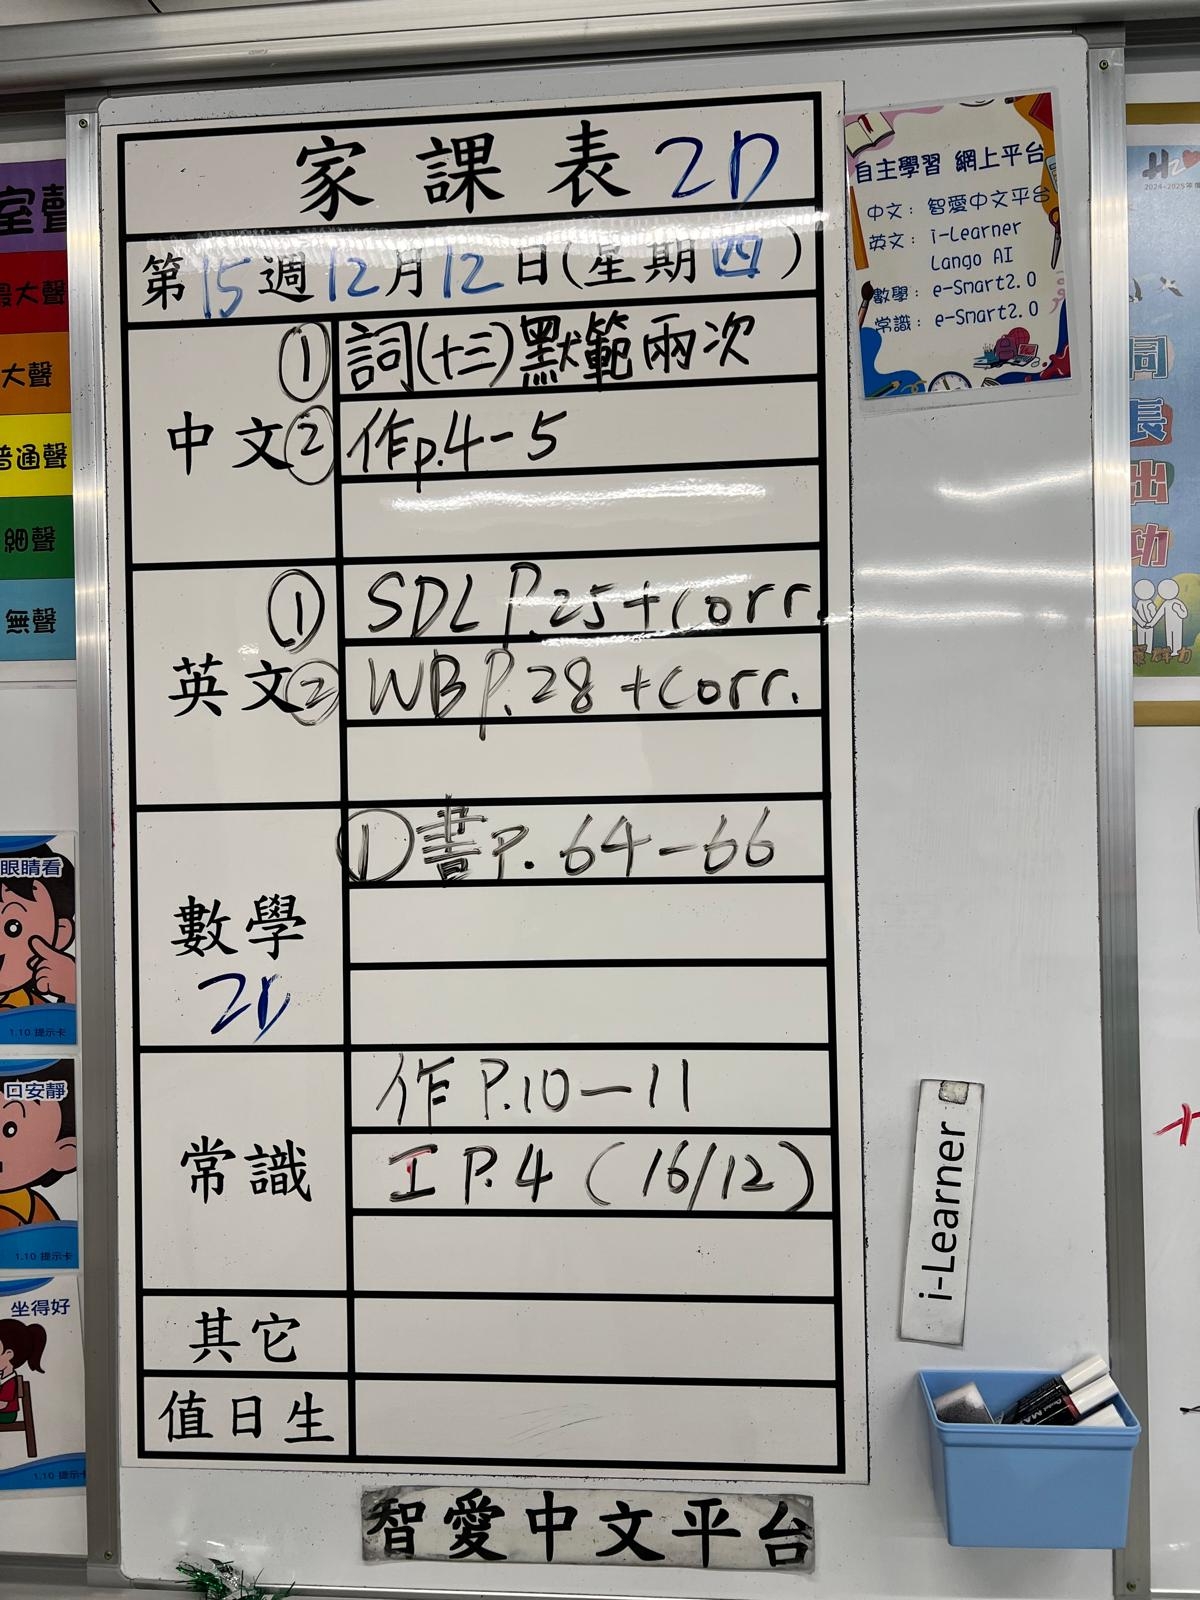 家課表 2D
第15週12月12日(星期四)
中文
① 詞(十三)默範兩次
② 作p.4-5
英文
① SDL P.25+corr.
② WB P.28+corr.
數學
2D
① 書P.64-66
常識
作P.10-11
工P.4 (16/12)
其它
值日生
智愛中文平台
自主學習 網上平台
中文: 智愛中文平台
英文: i-Learner
Lango AI
數學: e-Smart2.0
常識: e-Smart2.0
i-Learner
室聲
最大聲
大聲
普通聲
細聲
無聲
眼睛看
1.10 提示卡
口安靜
1.10 提示卡
坐得好
1.10 提示卡
2024-2025年度
同
長
出
功